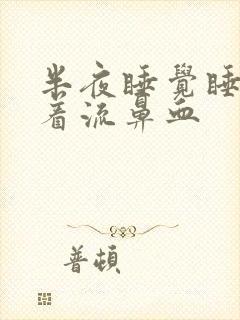 半夜睡覺睡
着流鼻血
普頓